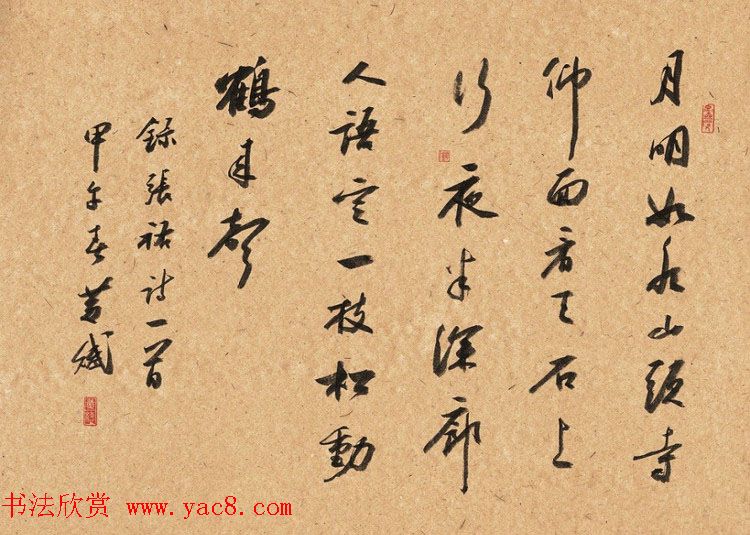 月明如水山頭寺
仰面看天石上
行夜半深廊
人語定一枝松動
鶴来聲
錄張祜詩一首
甲午春
书法欣赏 www.yac8.com